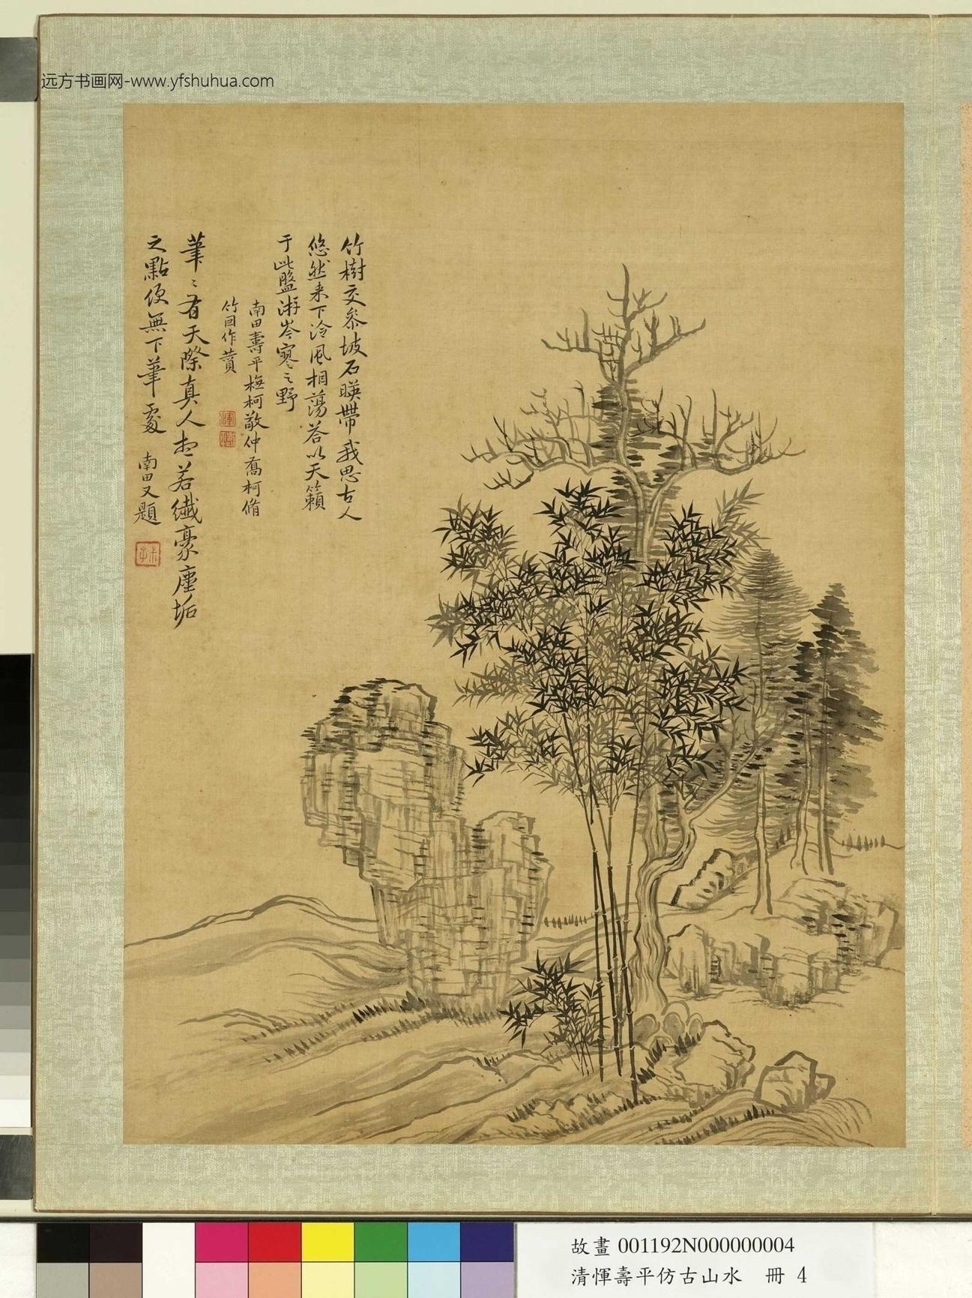 远方书画网-www.yfshuhua.com
竹樹交參坡石暎帶我思古人
悠然来下泠風相蕩答以天籟
于此盤游岑寒之野
南田壽平橅柯敬仲喬柯脩
竹回作贊
筆〻有天際真人想若纖豪塵垢
之點便無下筆處 南田又題
故畫 001192N000000004
清惲壽平仿古山水 冊 4